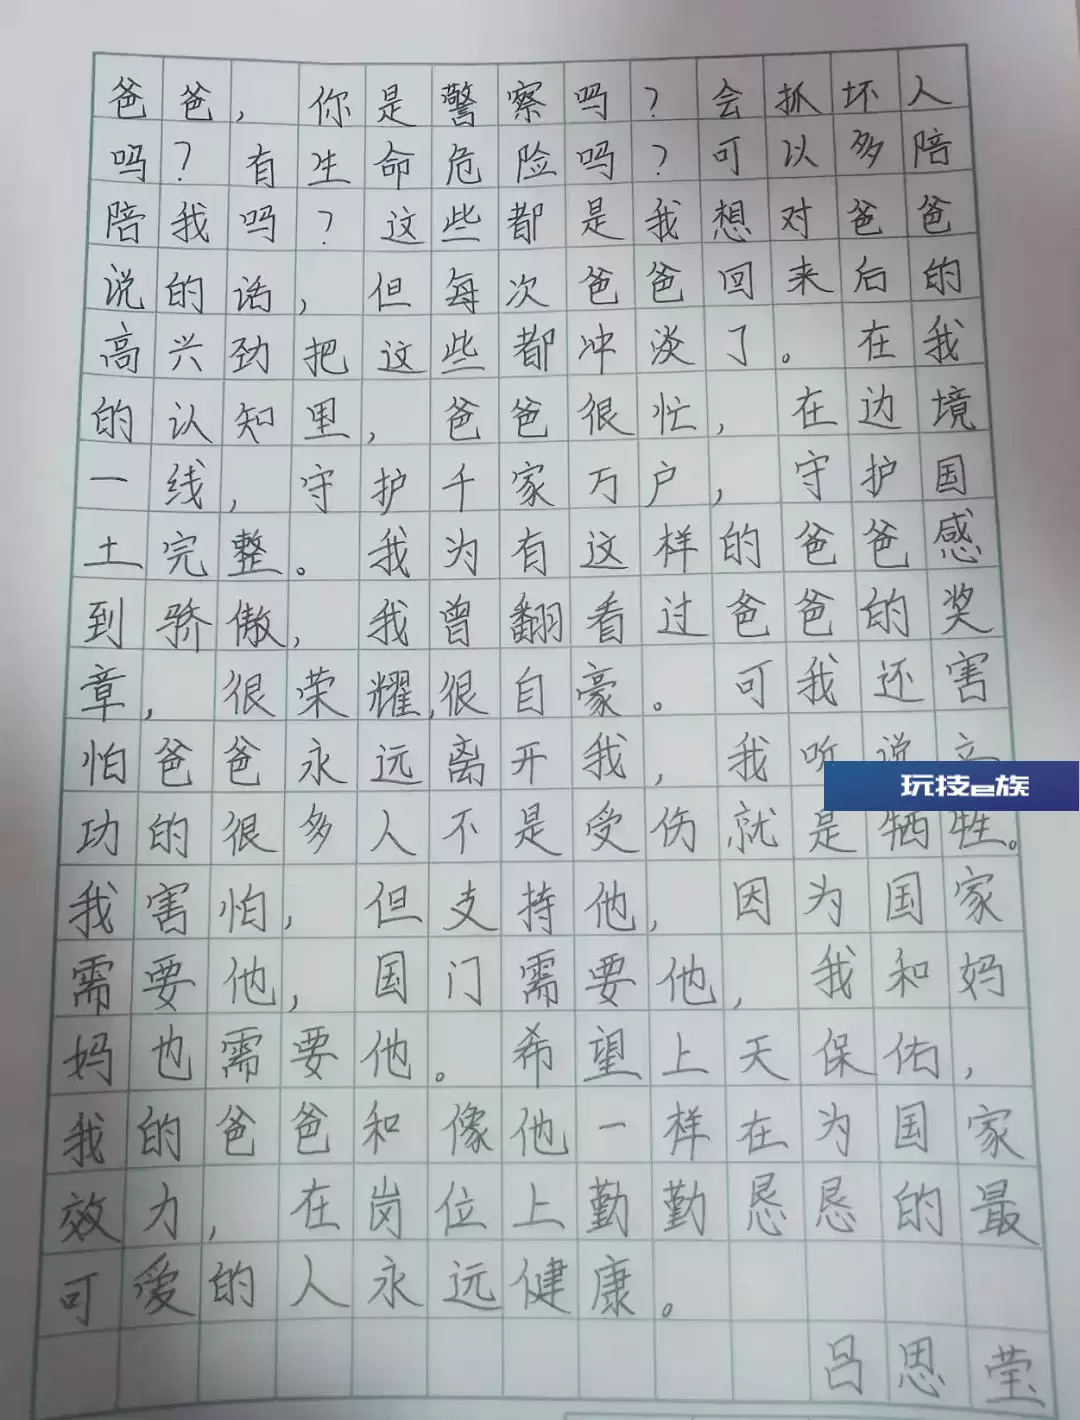 爸爸，你是警察吗？会抓坏人
吗？有生命危险吗？可以多陪
陪我吗？这些都是我想对爸爸
说的话，但每次爸爸回来后的
高兴劲把这些都冲淡了。在我
的认知里，爸爸很忙，在边境
一线，守护千家万户，守护国
土完整。我为有这样的爸爸感
到骄傲，我曾翻看过爸爸的奖
章，很荣耀，很自豪。可我还害
怕爸爸永远离开我，我听说立
玩技e族
功的很多人不是受伤就是牺牲。
我害怕，但支持他，因为国家
需要他，国门需要他，我和妈
妈也需要他。希望上天保佑，
我的爸爸和像他一样在为国家
效力，在岗位上勤勤恳恳的最
可爱的人永远健康。
吕恩莹